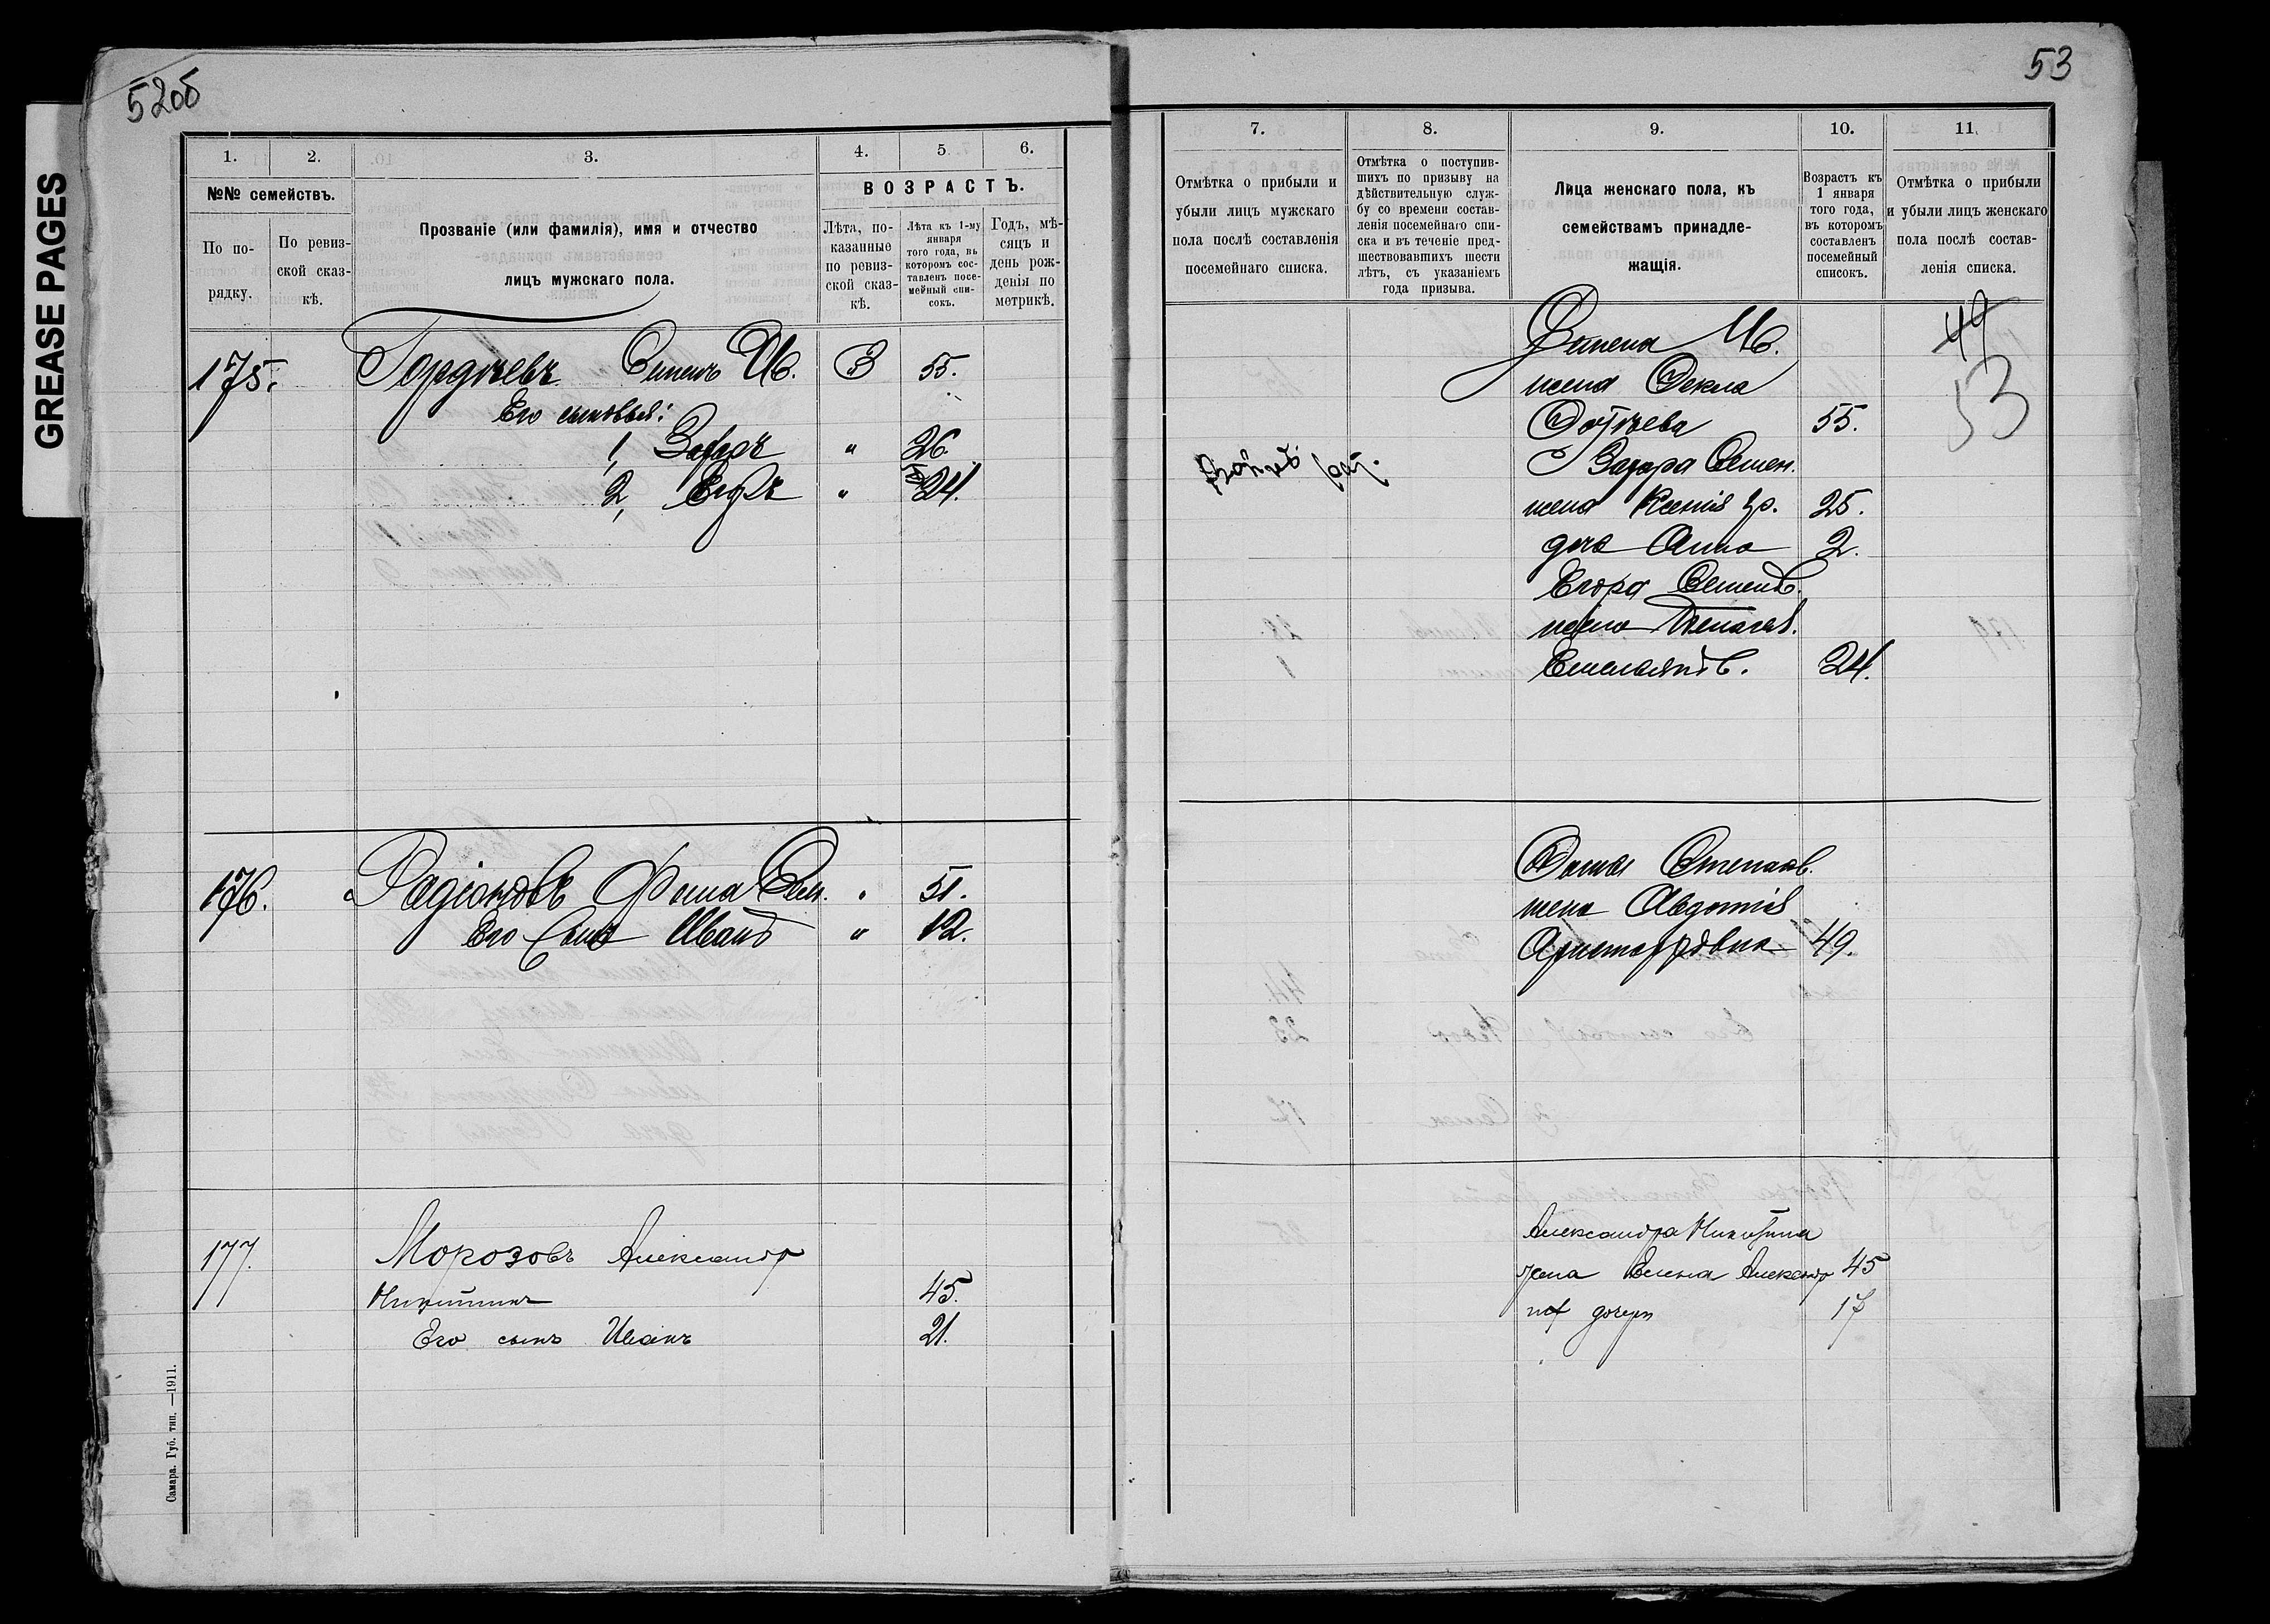 GREASE PAGES
52об
1.
2.
3.
4.
5.
6.
№№ семействъ.
По по-
рядку.
По ревиз-
ской сказ-
кѣ.
Прозваніе (или фамилія), имя и отчество
лицъ мужскаго пола.
ВОЗРАСТЪ.
Лѣта, по-
казанные
по ревиз-
ской сказ-
кѣ.
Лѣта къ 1-му
января
того года, въ
которомъ сос-
тавленъ посе-
мейный спи-
сокъ.
Годъ, мѣ-
сяцъ и
день рож-
денія по
метрикѣ.
175. Гордѣевъ Семенъ Ив. 3 55.
Его сыновья:
1, Захаръ " 26
2, Егоръ " 24.
176. Радіоновъ Фома " 51.
Его сынъ Иванъ " 12.
177. Морозовъ Александр
Никитинъ 45.
Его сынъ Иванъ 21.
Самара. Губ. тип. —1911.
53
7.
8.
9.
10.
11.
Отмѣтка о прибыли и
убыли лицъ мужскаго
пола послѣ составленія
посемейнаго списка.
Отмѣтка о поступив-
шихъ по призыву на
дѣйствительную служ-
бу со времени состав-
ленія посемейнаго спи-
ска и въ теченіе пред-
шествовавшихъ шести
лѣтъ, съ указаніемъ
года призыва.
Лица женскаго пола, къ
семействамъ принадле-
жащія.
Возрастъ къ
1 января
того года,
въ которомъ
составленъ
посемейный
списокъ.
Отмѣтка о прибыли
и убыли лицъ женскаго
пола послѣ состав-
ленія списка.
Семена Ив. 49
жена Фекла 53
55.
Захара Семен.
жена Ксенія 25.
дочь Анна 2.
Егора Семенов.
жена Пелагея
Емельянов. 24.
Фомы Степанов.
жена Авдотія
49.
Александра Никитина
жена Елена Александр 45
их дочери 17